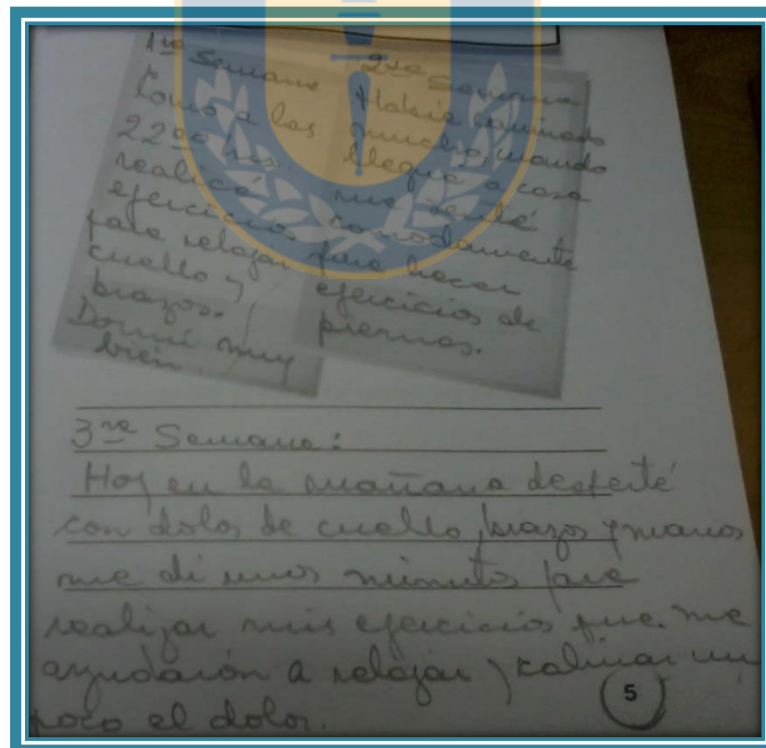 1ra Semana
Como a las
22:00 hrs.
realicé
ejercicios
para relajar
cuello y
brazos.
Dormí muy
bien
2da Semana
Había caminado
mucho, cuando
llegué a casa
me senté
comodamente
para hacer
ejercicios de
piernas.
3ra Semana:
Hoy en la mañana desperté
con dolor de cuello, brazos y manos
me di unos minutos para
realizar mis ejercicios que me
ayudarón a relajar y calmar un
poco el dolor.
5